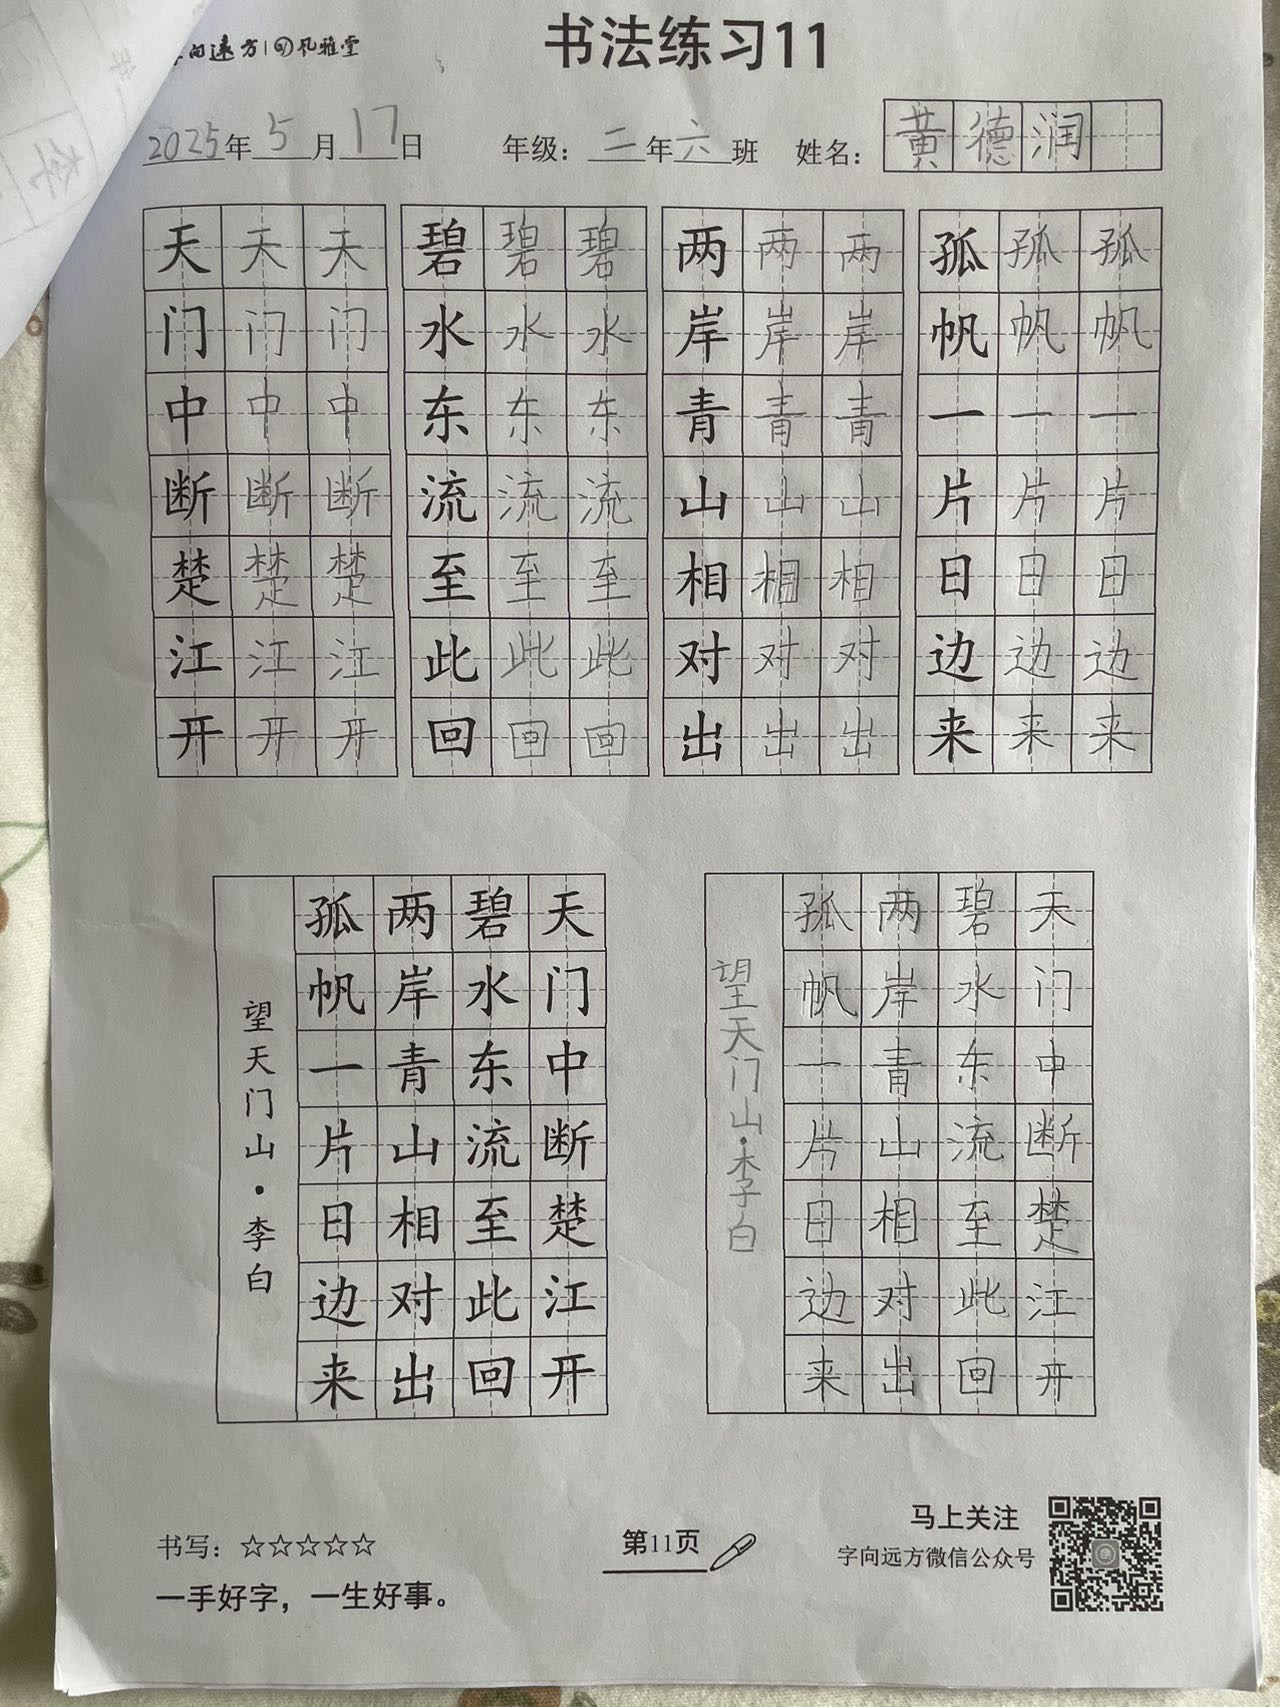 向远方 | 风雅堂
书法练习11
2025年5月17日 年级：二年六班 姓名：黄德润
天天天 碧碧碧 两两两 孤孤孤
门门门 水水水 岸岸岸 帆帆帆
中中中 东东东 青青青 一一一
断断断 流流流 山山山 片片片
楚楚楚 至至至 相相相 日日日
江江江 此此此 对对对 边边边
开开开 回回回 出出出 来来来
天门中断楚江开
碧水东流至此回
两岸青山相对出
孤帆一片日边来
望天门山·李白
天门中断楚江开
碧水东流至此回
两岸青山相对出
孤帆一片日边来
望天门山·李白
书写：☆☆☆☆☆
一手好字，一生好事。
第11页
马上关注
字向远方微信公众号